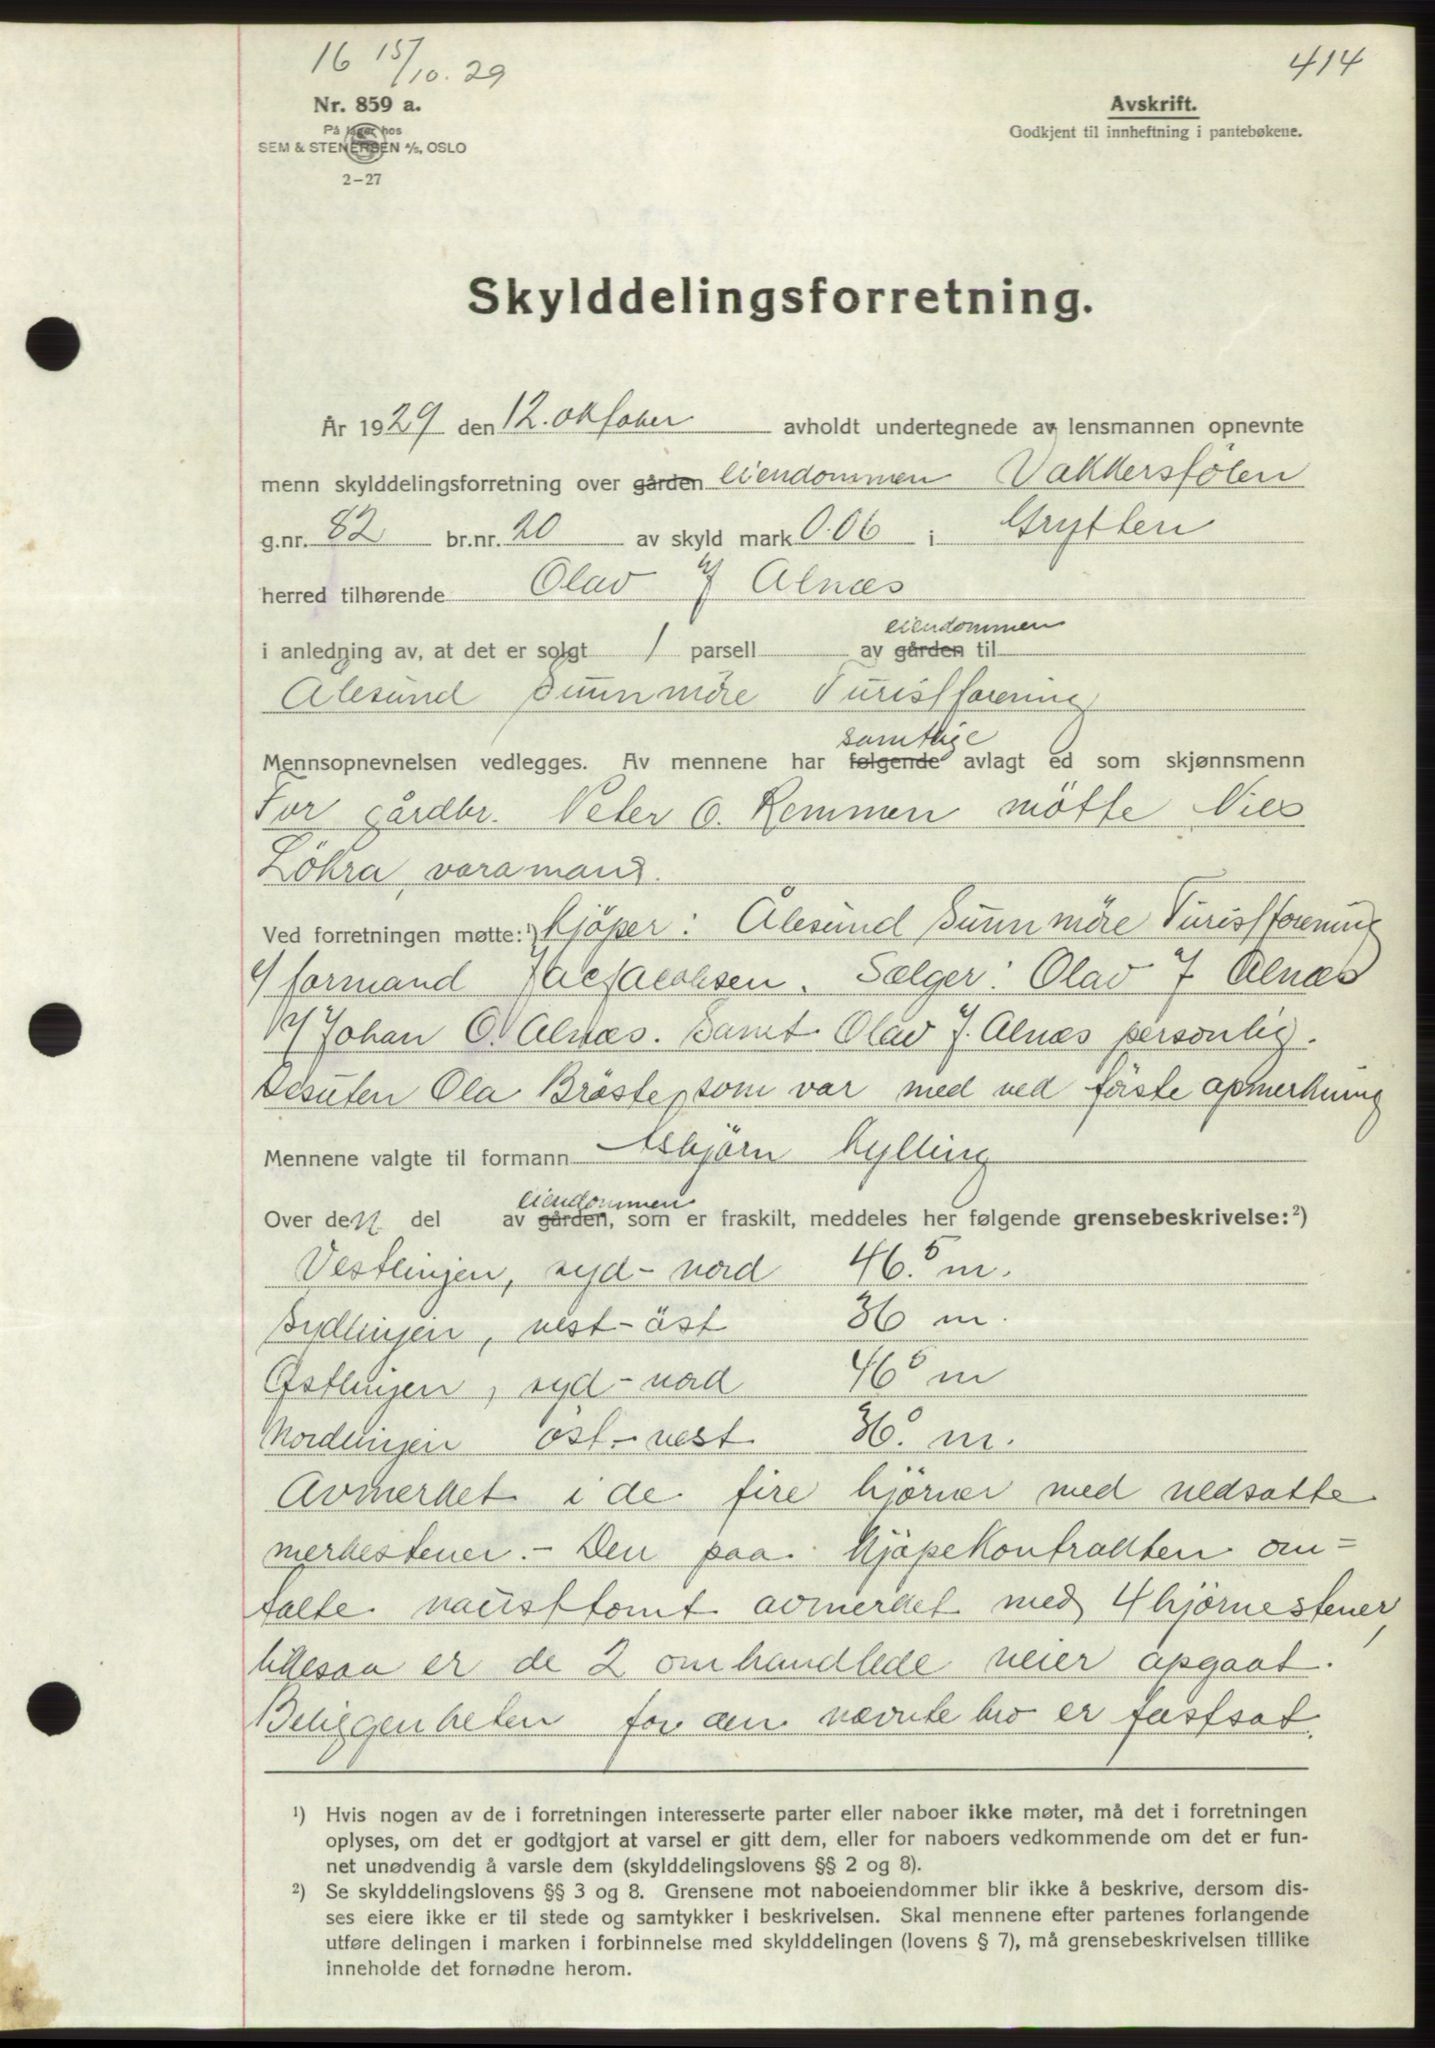 16 15/10.29
414
Nr. 859 a.
På lager hos
SEM & STENERSEN A/S, OSLO
2-27
Avskrift.
Godkjent til innheftning i pantebøkene.
Skylddelingsforretning.
År 1929 den 12. oktober avholdt undertegnede av lensmannen opnevnte
menn skylddelingsforretning over gården eiendommen Vakkersfölen
g.nr. 82 br.nr. 20 av skyld mark 0.06 i Grytten
herred tilhørende Olav J Alnæs
eiendommen
i anledning av, at det er solgt 1 parsell av gården til
Ålesund Sunnmöre Turistforening
samtlige
Mennsopnevnelsen vedlegges. Av mennene har følgende avlagt ed som skjønnsmenn
For gårdbr. Peter O. Remmen mötte Nils
Lökra, varamand.
Ved forretningen møtte: 1) Kjöper: Ålesund Sunnmöre Turistforening
v/ formand Jac Jacobsen. Sælger: Olav J Alnæs
v/ Johan O. Alnæs. Samt Olav J. Alnæs personlig.
Desuten Ola Bröste, som var med ved förste opmerkning
Mennene valgte til formann Asbjörn Kylling
eiendommen
Over den del av gården, som er fraskilt, meddeles her følgende grensebeskrivelse: 2)
Vestlinjen, syd - nord 46.5 m.
Sydlinjen, vest - öst 36 m.
Østlinjen, syd - nord 46 5 m
Nordlinjen öst - vest 36.0 m.
Avmerket i de fire hjörner med nedsatte
merkestener. - Den paa kjöpekontrakten om=
talte nausttomt avmerket med 4 hjörnestener,
likesaa er de 2 omhandlede veier opgaat.
Beliggenheten for den nævnte bro er fastsat.
1) Hvis nogen av de i forretningen interesserte parter eller naboer ikke møter, må det i forretningen
oplyses, om det er godtgjort at varsel er gitt dem, eller for naboers vedkommende om det er fun-
net unødvendig å varsle dem (skylddelingslovens §§ 2 og 8).
2) Se skylddelingslovens §§ 3 og 8. Grensene mot naboeiendommer blir ikke å beskrive, dersom dis-
ses eiere ikke er til stede og samtykker i beskrivelsen. Skal mennene efter partenes forlangende
utføre delingen i marken i forbinnelse med skylddelingen (lovens § 7), må grensebeskrivelsen tillike
inneholde det fornødne herom.